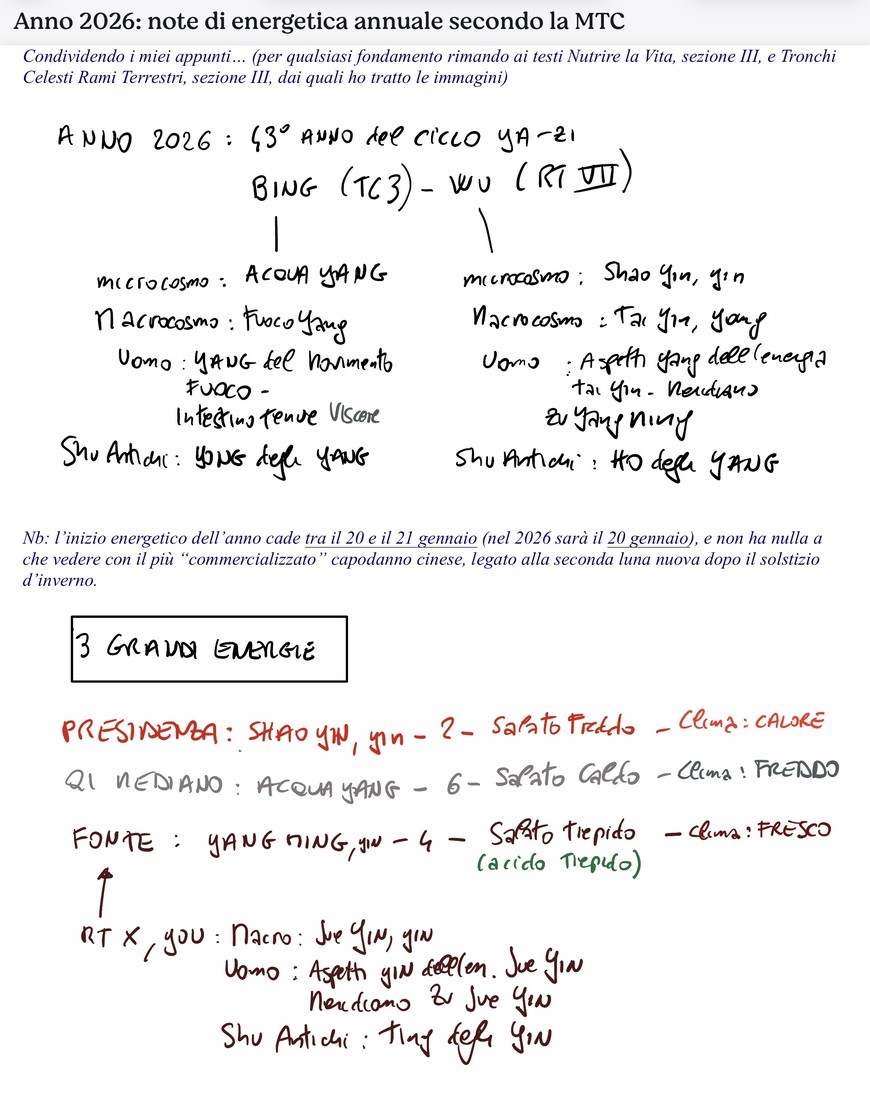 Anno 2026: note di energetica annuale secondo la MTC
Condividendo i miei appunti… (per qualsiasi fondamento rimando ai testi Nutrire la Vita, sezione III, e Tronchi
Celesti Rami Terrestri, sezione III, dai quali ho tratto le immagini)
ANNO 2026 : 43° ANNO del CICLO YA-ZI
BING (TC3) - WU (RT VII)
microcosmo : ACQUA YANG
Macrocosmo : Fuoco Yang
Uomo : YANG del Movimento
FUOCO -
Intestino tenue Viscere
Shu Antichi : YONG degli YANG
microcosmo : Shao Yin, yin
Macrocosmo : Tai Yin, yang
Uomo : Aspetti yang dell'energia
tai yin - Meridiano
Zu Yang Ming
Shu Antichi : HO degli YANG
Nb: l'inizio energetico dell'anno cade tra il 20 e il 21 gennaio (nel 2026 sarà il 20 gennaio), e non ha nulla a
che vedere con il più “commercializzato” capodanno cinese, legato alla seconda luna nuova dopo il solstizio
d'inverno.
3 GRANDI ENERGIE
PRESIDENZA : SHAO YIN, yin - 2 - Salato Freddo - Clima : CALORE
QI MEDIANO : ACQUA YANG - 6 - Salato Caldo - Clima : FREDDO
FONTE : YANG MING, yin - 4 - Salato tiepido - Clima : FRESCO
(acido Tiepido)
RT X, YOU : Macro : Jue YIN, yin
Uomo : Aspetti yin dell'en. Jue YIN
Meridiano Zu Jue YIN
Shu Antichi : Ting degli YIN